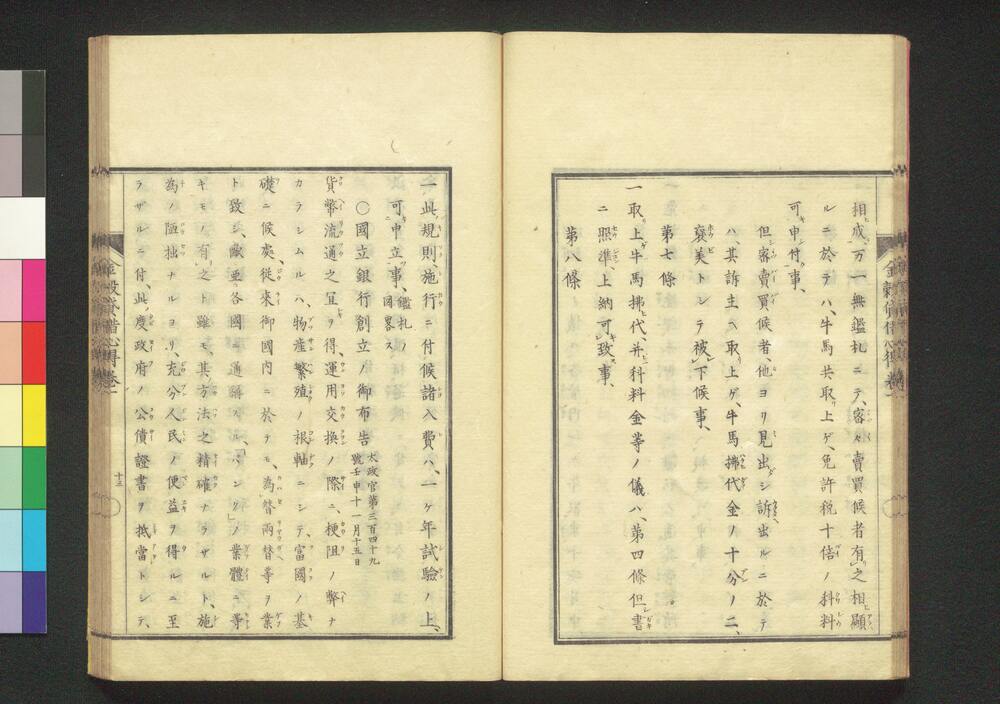 相成、万一無鑑札ニテ、密々賣買候者有之相顯
ルニ於テハ、牛馬共取上ゲ、免許税十倍ノ科料
可申付事、
但密賣買候者、他ヨリ見出シ訴出ルニ於テ
ハ、其訴主ヘ取上ゲ、牛馬拂代金ノ十分ノ二、
褒美トシテ被下候事、
第七條
一取上牛馬拂代、并科料金等ノ儀ハ、第四條但書
ニ照準上納可致事、
第八條
一此規則施行ニ付候諸入費ハ、一ヶ年試験ノ上、
可申立事、鑑札ノ圖畧ス
〇國立銀行創立ノ御布告 太政官第三百四十九號壬申十一月十五日
貨幣流通之冝ヲ得、運用交換ノ際ニ、梗阻ノ弊ナ
カラシムルハ、物産繁殖ノ根軸ニシテ、富國ノ基
礎ニ候處、從來御國内ニ於テモ、為替兩替等ヲ業
ト致シ、歐亜各國ニ通稱スル、「バンク」ノ業體ニ等
キモノ有之ト雖モ、其方法之精確ナラザルト、施
為ノ陋拙ナルヨリ、充分人民ノ便益ヲ得ルニ至
ラザルニ付、此度政府ノ公債證書ヲ抵當トシテ、
金穀貸借心得 巻一
十三